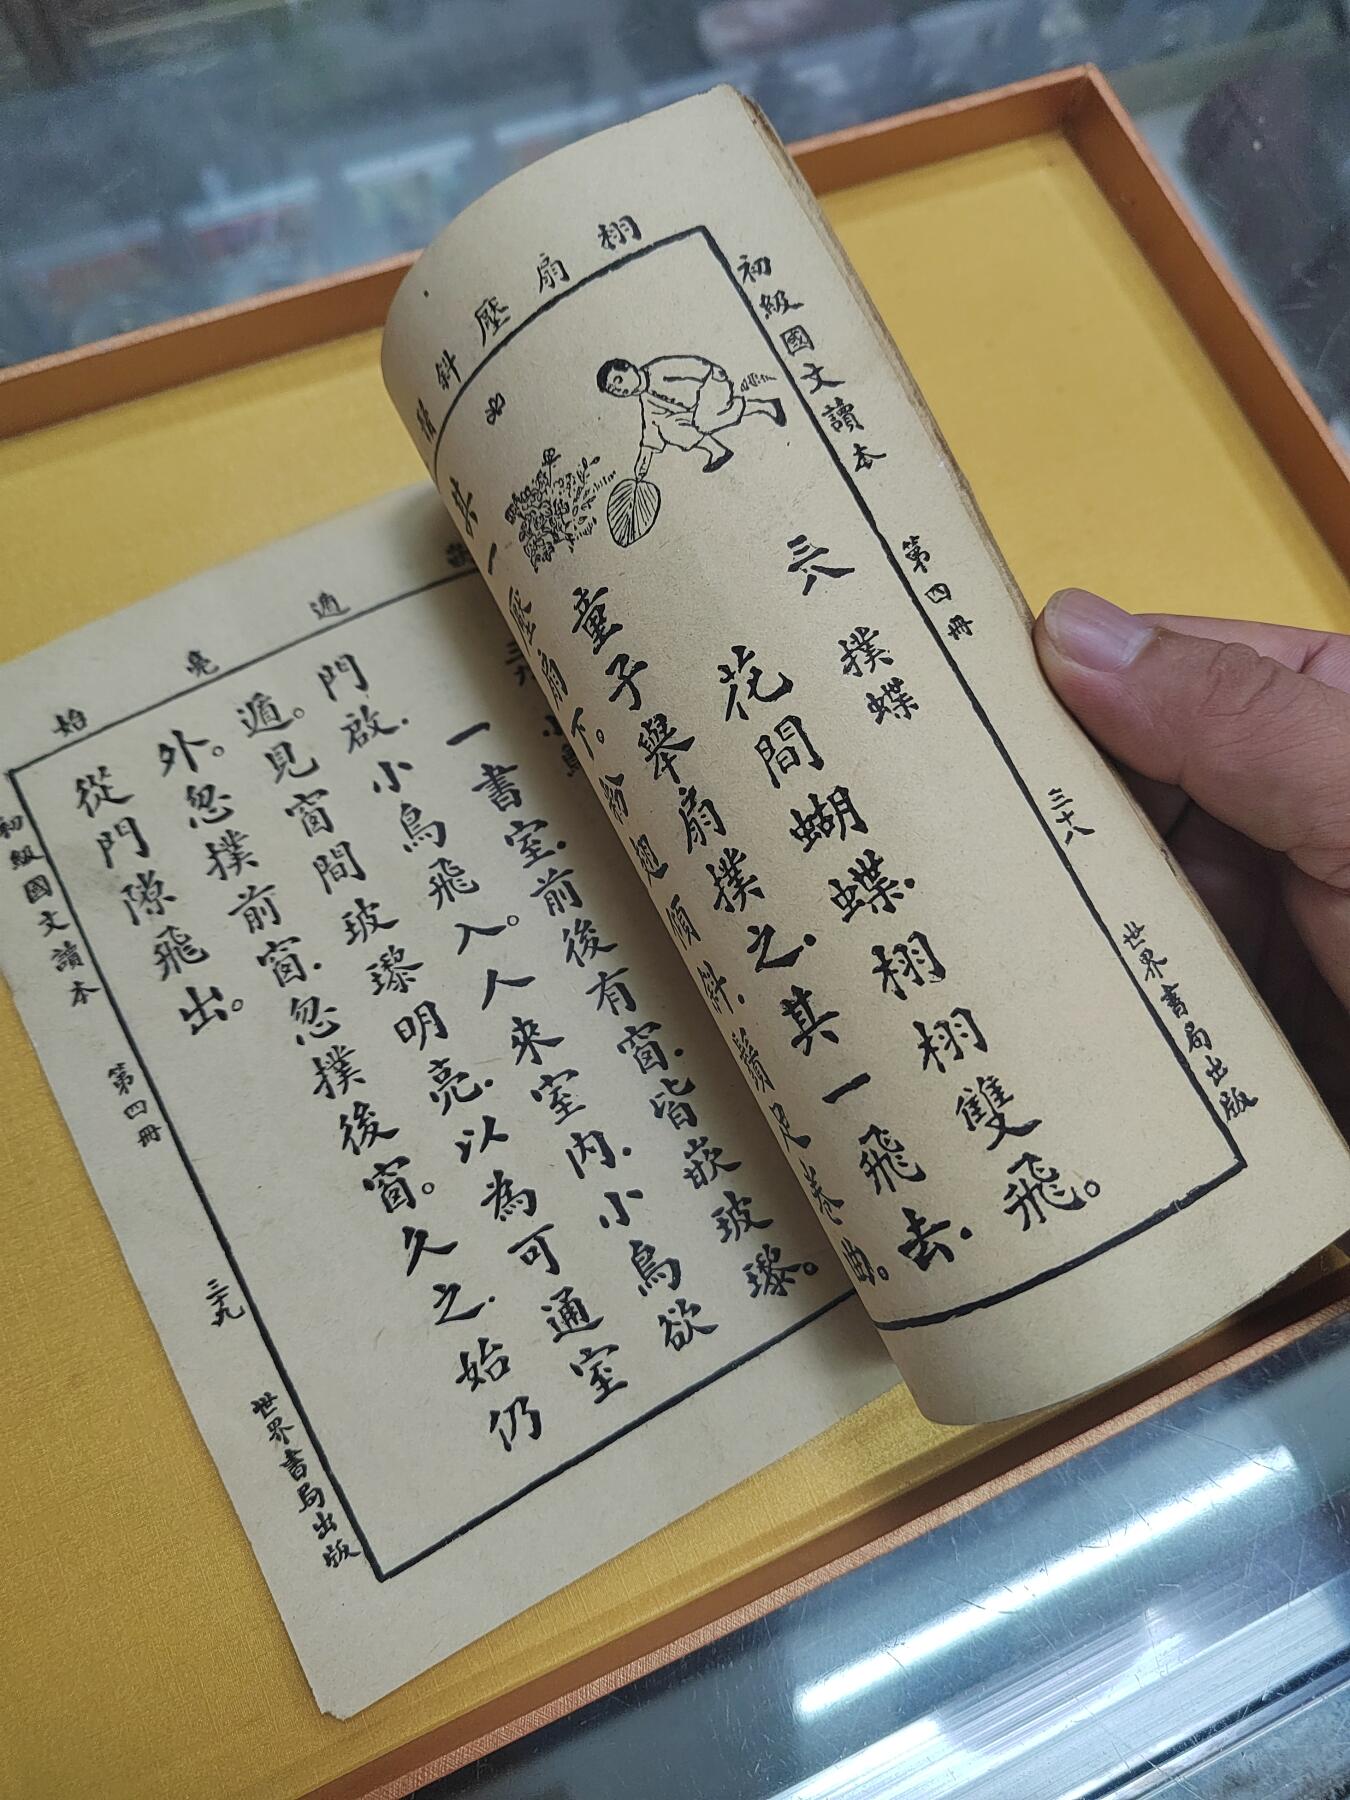 初級國文讀本 第四冊 三十八 世界書局出版
栩 扇 壓 斜
三八 撲蝶
花間蝴蝶.栩栩雙飛。
童子舉扇撲之.其一飛去.
其一壓扇下。粉翅傾斜.鬚足卷曲。
通 亮 始
三九 小鳥
一書室.前後有窗.皆嵌玻璨。
門啟.小鳥飛入。人來室內.小鳥欲
遁。見窗間玻璨明亮.以為可通室
外。忽撲前窗.忽撲後窗。久之.始仍
從門隙飛出。
初級國文讀本 第四冊 三九 世界書局出版